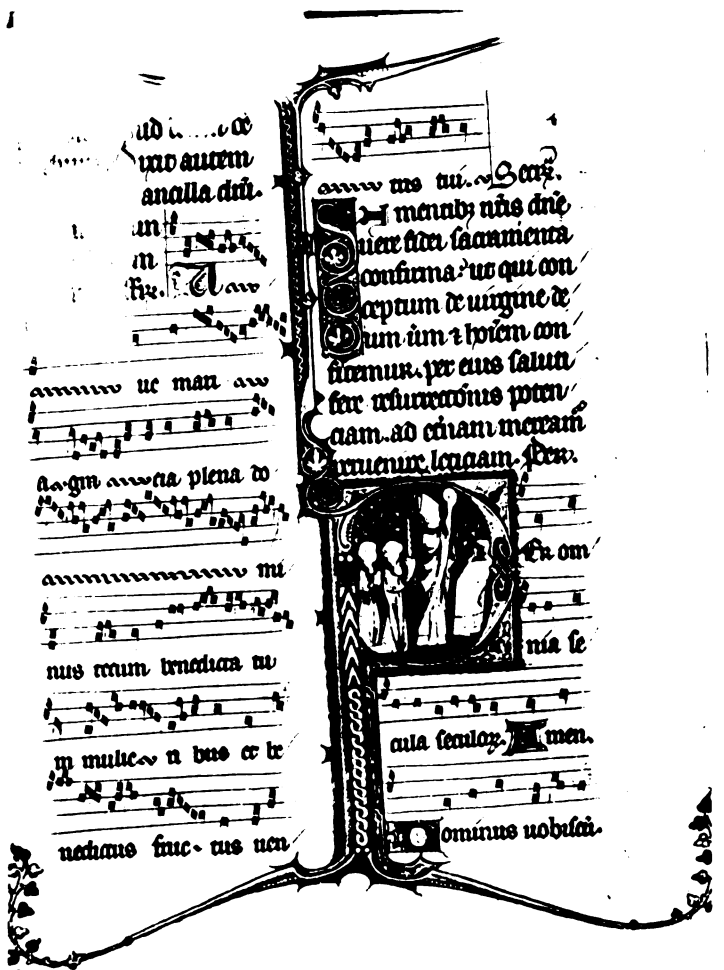 ixit autem
ancilla dn̄i.
ue mari
a gra cia plena do
mi
nus tecum benedicta tu
in mulie ri bus et be
nedictus fruc tus uen
tris tui. Secr̄.
In mentibz nr̄is dn̄e
uere fidei sacramenta
confirma: ut qui con
ceptum de uirgine de
um uerum ⁊ hoīem con
fitemur. per eius saluti
fere resurrectōnis poten
ciam. ad etnam mereamr̄
peruenire leticiam. Per.
Per om
nia se
cula seculoꝝ. Amen.
Dominus uobiscū.